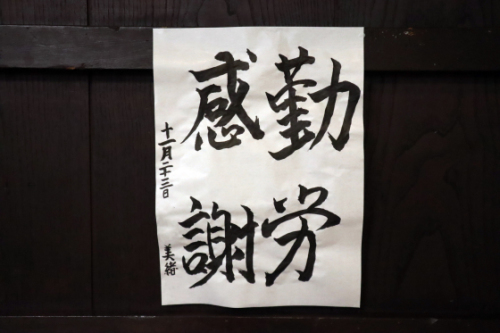 勤労
感謝
十一月二十三日
美術